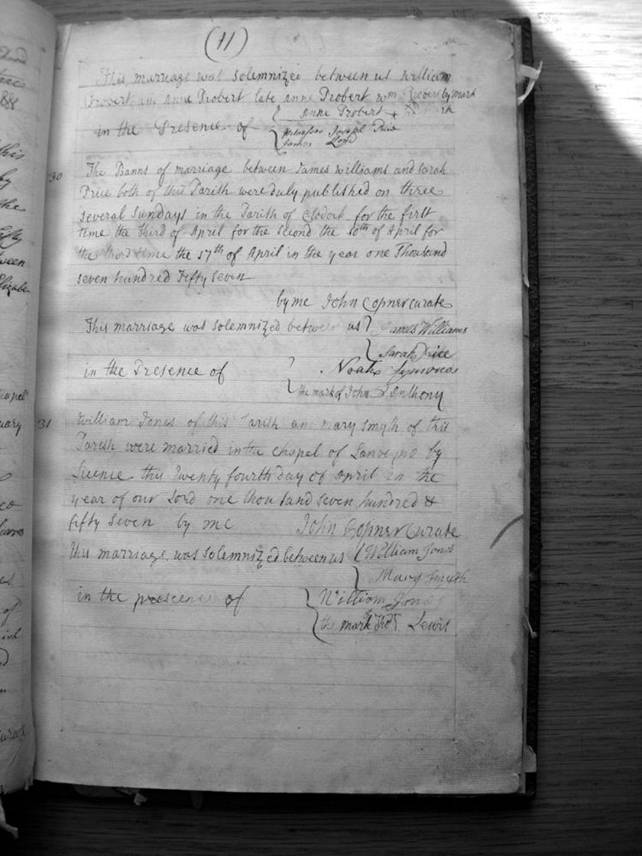 (11)
This marriage was solemnized between us William
Probert and Anne Probert late Anne Probert
Anne Probert
in the Presence of
James
30 The Banns of marriage between James Williams and Sarah
Price both of this Parish were duly published on three
several Sundays in the Parish of Clodock for the first
time the Third of April for the second the 10th of April for
the third time the 17th of April in the year one Thousand
seven hundred Fifty Seven
by me John Copner curate
This marriage was solemnized between us James Williams
Sarah Price
in the Presence of Noah Symonds
the mark of John Anthony
31 William Jones of this Parish and Mary Smyth of this
Parish were married in the chapel of by
Licence this Twenty fourth day of April in the
year of our Lord one thousand seven hundred &
fifty seven by me John Copner Curate
this marriage was solemnized between us William Jones
Mary Smyth
in the prescence of William Jones
the mark Lewis